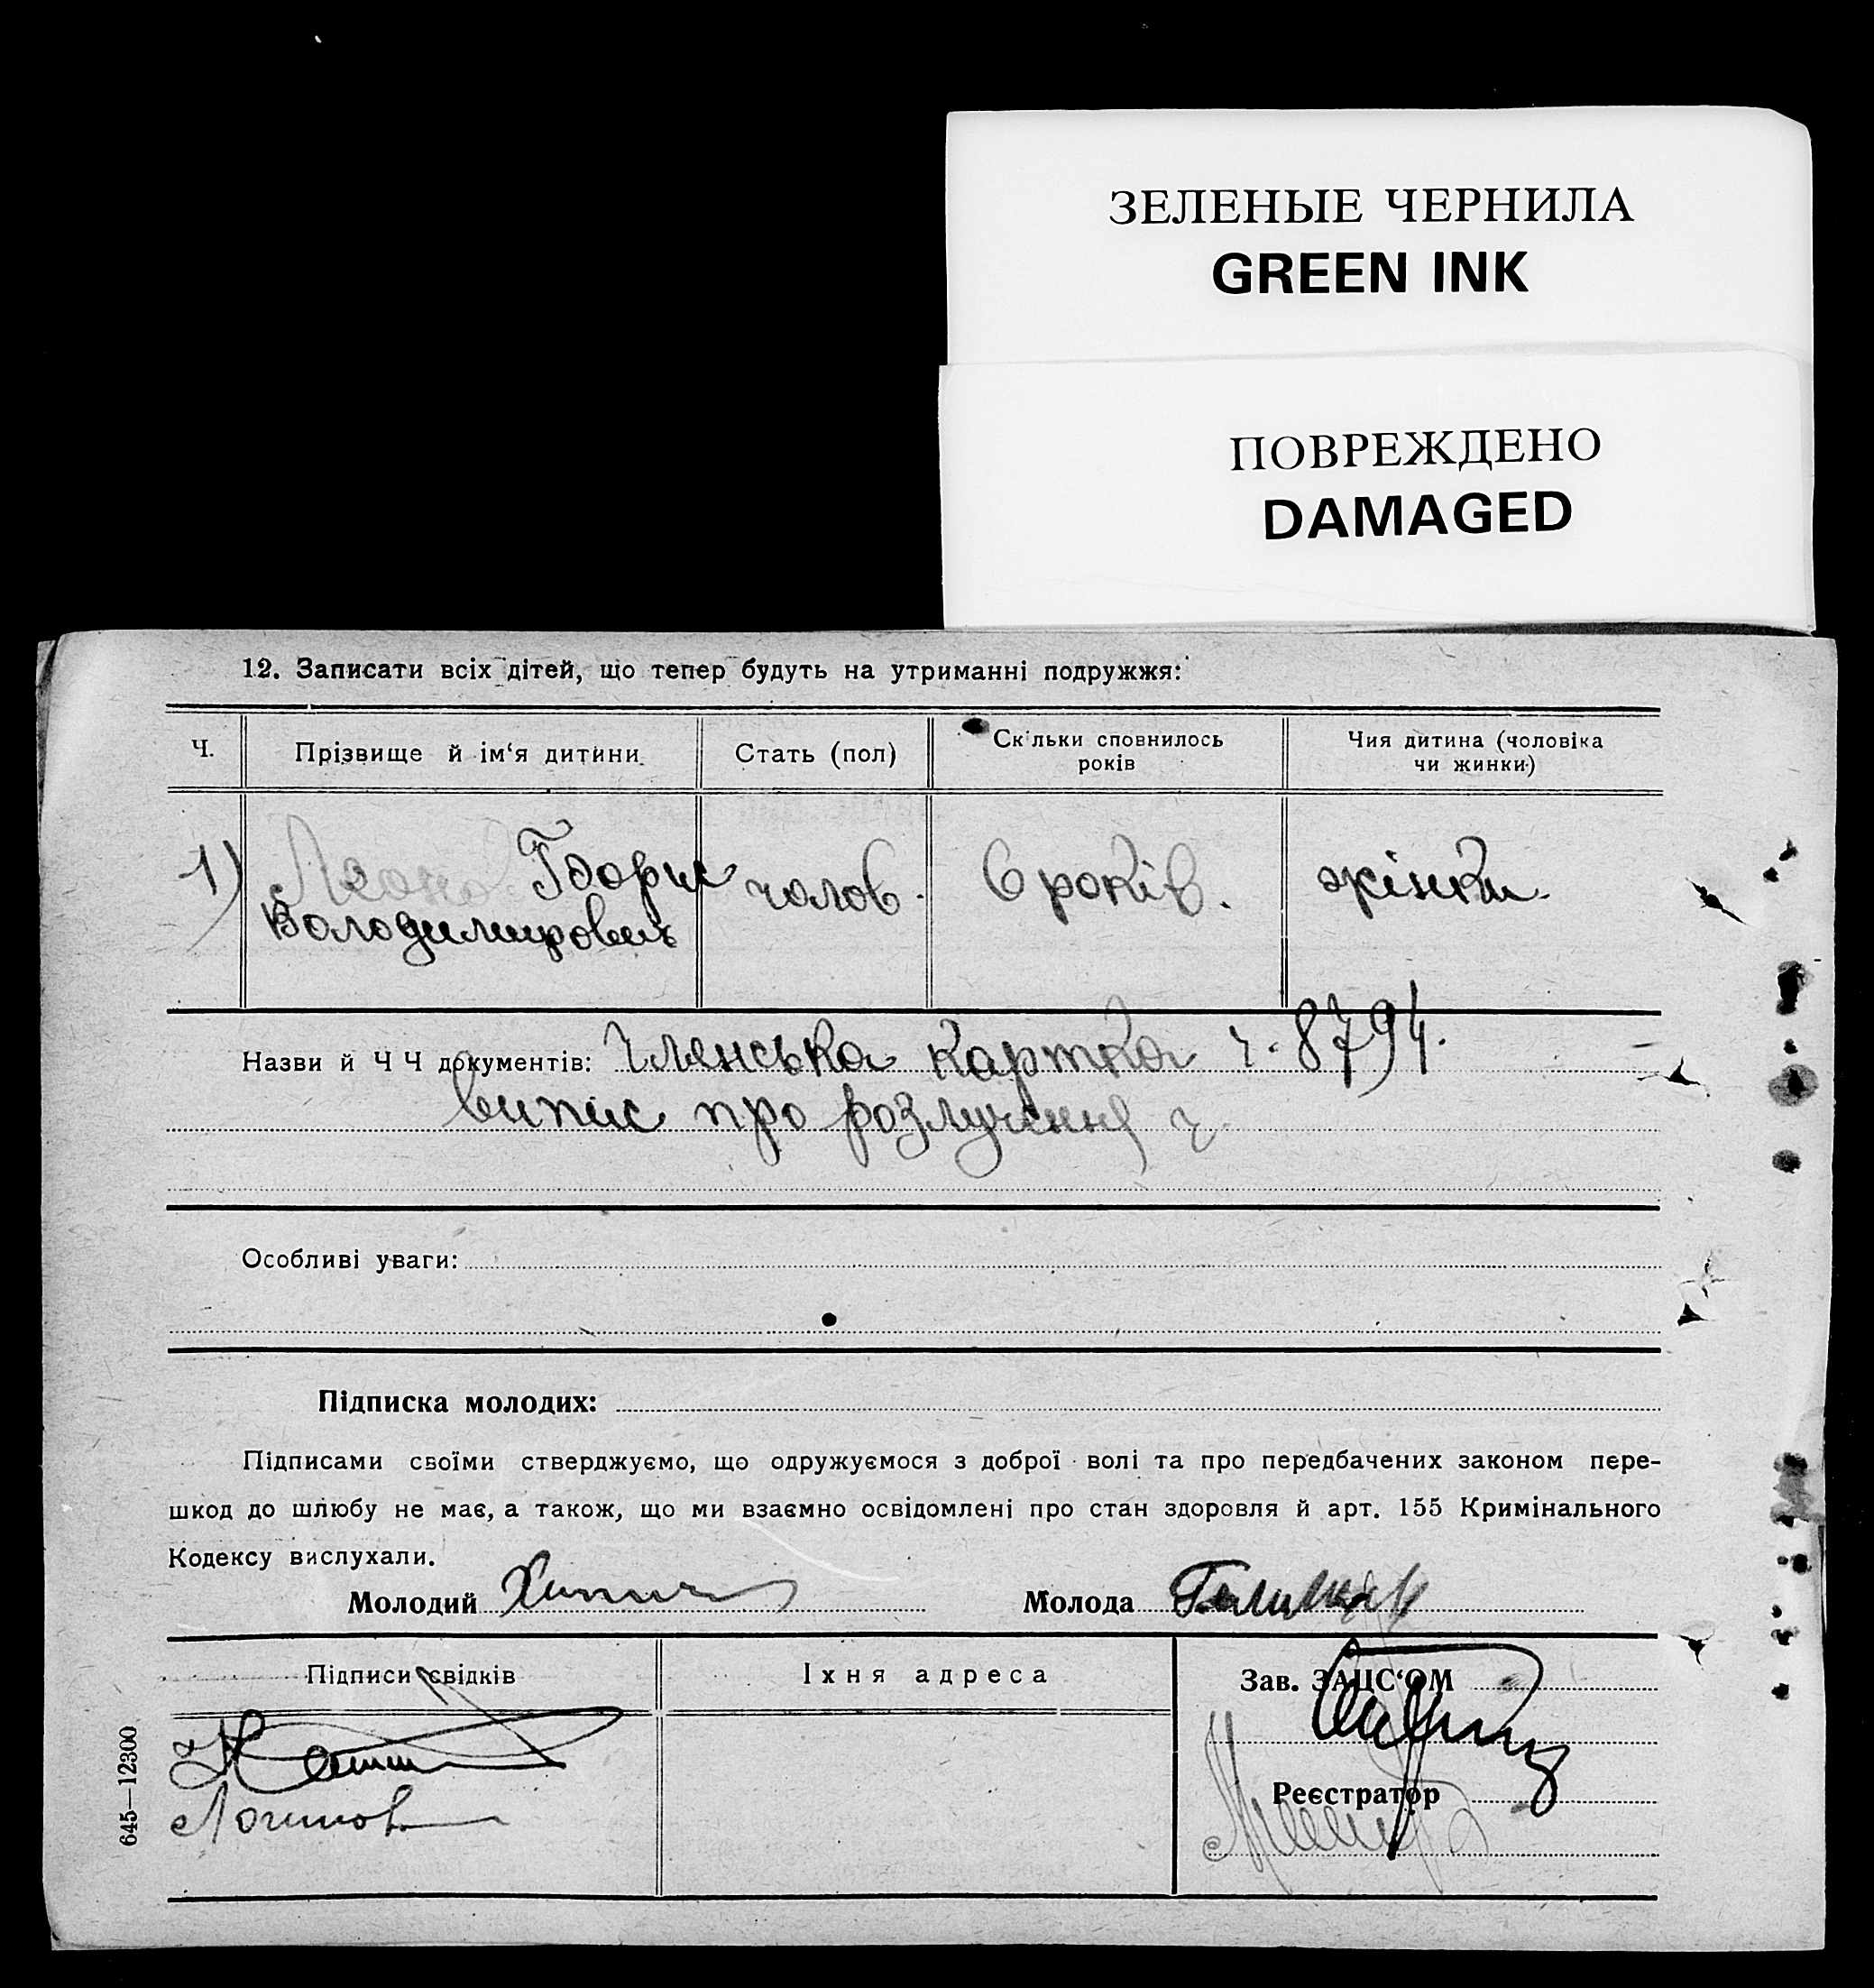 ЗЕЛЕНЫЕ ЧЕРНИЛА
GREEN INK
ПОВРЕЖДЕНО
DAMAGED
12. Записати всіх дітей, що тепер будуть на утриманні подружжя:
Ч. Прізвище й ім‘я дитини Стать (пол) Скільки сповнилось років Чия дитина (чоловіка чи жинки)
1) Борис чолов. 6 років. жінки.
Володимирович
Назви й Ч Ч документів: Членська картка ч. 8794.
випис про розлучення ч.
Особливі уваги:
Підписка молодих:
Підписами своїми стверджуємо, що одружуємося з доброї волі та про передбачених законом пере-
шкод до шлюбу не має, а також, що ми взаємно освідомлені про стан здоровля й арт. 155 Кримінального
Кодексу вислухали.
Молодий Молода
Підписи свідків Їхня адреса Зав. ЗАЦС‘ОМ
Реєстратор
645—12300